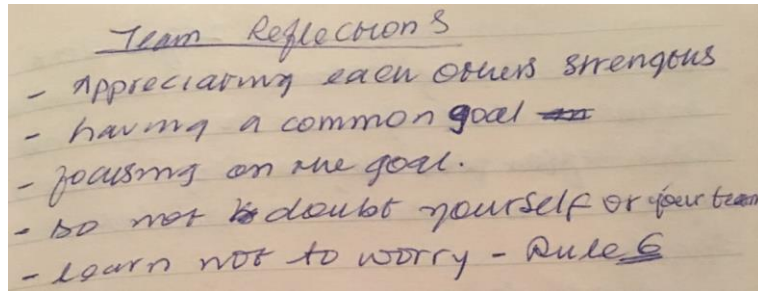 Team Reflections
- Appreciating each others strengths
- having a common goal
- focusing on the goal.
- Do not doubt yourself or your team
- learn not to worry - Rule 6